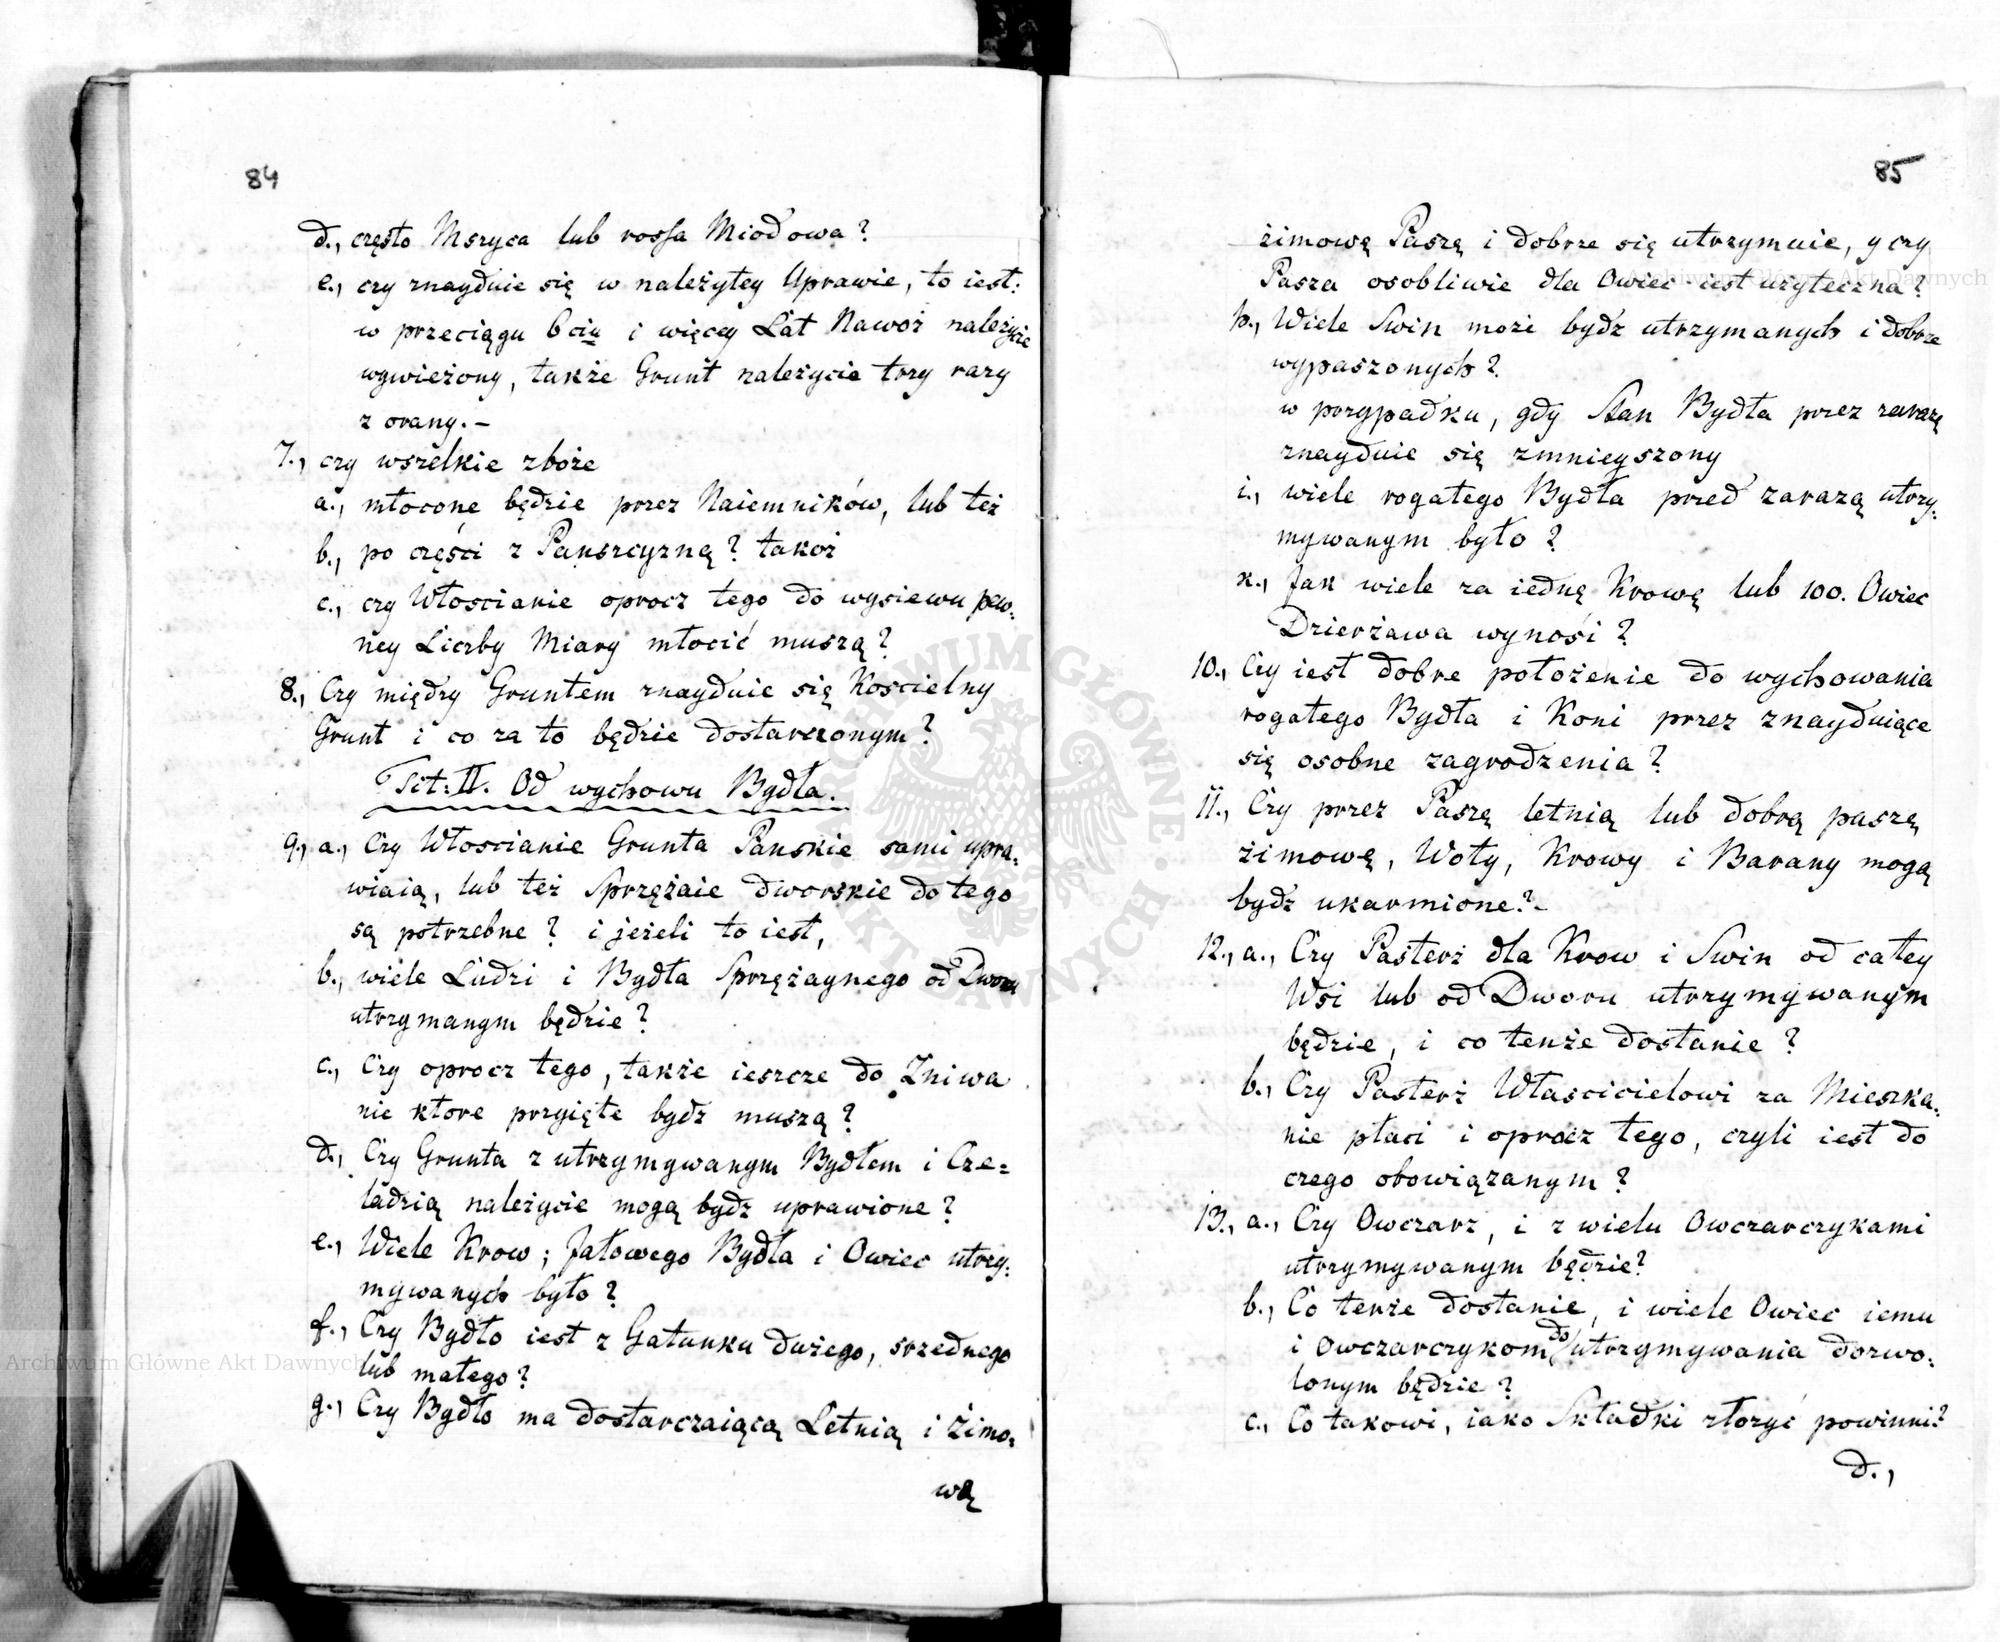 84
d., często Mszyca lub rossa Miodowa?
e., czy znayduie się w należytey Uprawie, to iest:
w przeciągu 6ciu i więcey Lat Nawoz należycie
wywieżony, także Grunt należycie trzy razy
z orany. –
7., czy wszelkie zboże
a., młocone będzie przez Naiemników, lub też
b., po części z Panszczyzną? takoż
c., czy Włoscianie oprocz tego do wysiewu pew:
ney Liczby Miary młocić muszą?
8., Czy między Gruntem znayduie się Koscielny
Grunt i co za to będzie dostarczonym?
Tit: II. Od wychowu Bydła.
9., a., Czy Włoscianie Grunta Panskie sami upra:
wiaią, lub też Sprzężaie dworskie do tego
są potrzebne? i jeżeli to iest,
b., wiele Ludzi i Bydła Sprzężaynego od Dworu
utrzymanym będzie?
c., Czy oprocz tego, także ieszcze do Zniwa
nie ktore przyięte bydz muszą?
d., Czy Grunta z utrzymywanym Bydłem i Cze=
ladzią należycie mogą bydz uprawione?
e., Wiele Krow; Jałowego Bydła i Owiec utrzy:
mywanych było?
f., Czy Bydło iest z Gatunku dużego, srzednego
lub małego?
g., Czy Bydło ma dostarczaiącą Letnią i Zimo:
wą
85
zimowę Paszę i dobrze się utrzymuie, y czy
Pasza osobliwie dla Owiec iest użyteczna?
h., Wiele Swin może bydz utrzymanych i dobrze
wypaszonych?
w przypadku, gdy Stan Bydła przez zarazę
znayduie się zmnieyszony
i., wiele rogatego Bydła przed zarazą utrzy:
mywanym było?
k., Jak wiele za iednę Krowę lub 100. Owiec
Dzierżawa wynośi?
10., Czy iest dobre położenie do wychowania
rogatego Bydła i Koni przez znayduiące
się osobne zagrodzenia?
11., Czy przez Paszę letnią lub dobrą paszę
zimowę, Woły, Krowy i Barany mogą
bydz ukarmione? –
12., a., Czy Pasterz dla Krow i Swin od całey
Wsi lub od Dworu utrzymywanym
będzie, i co tenże dostanie?
b., Czy Pasterz Własciciełowi za Mieszka:
nie płaci i oprocz tego, czyli iest do
czego obowiązanym?
13., a., Czy Owczarz, i z wielu Owczarczykami
utrzymywanym będzie?
b., Co tenże dostanie, i wiele Owiec iemu
i Owczarczykom do utrzymywania dozwo:
lonym będzie?
c., Co takowi, iako Składki złożyć powinni?
d.,
ARCHIWUM GŁÓWNE AKT DAWNYCH
Archiwum Główne Akt Dawnych
Archiwum Główne Akt Dawnych